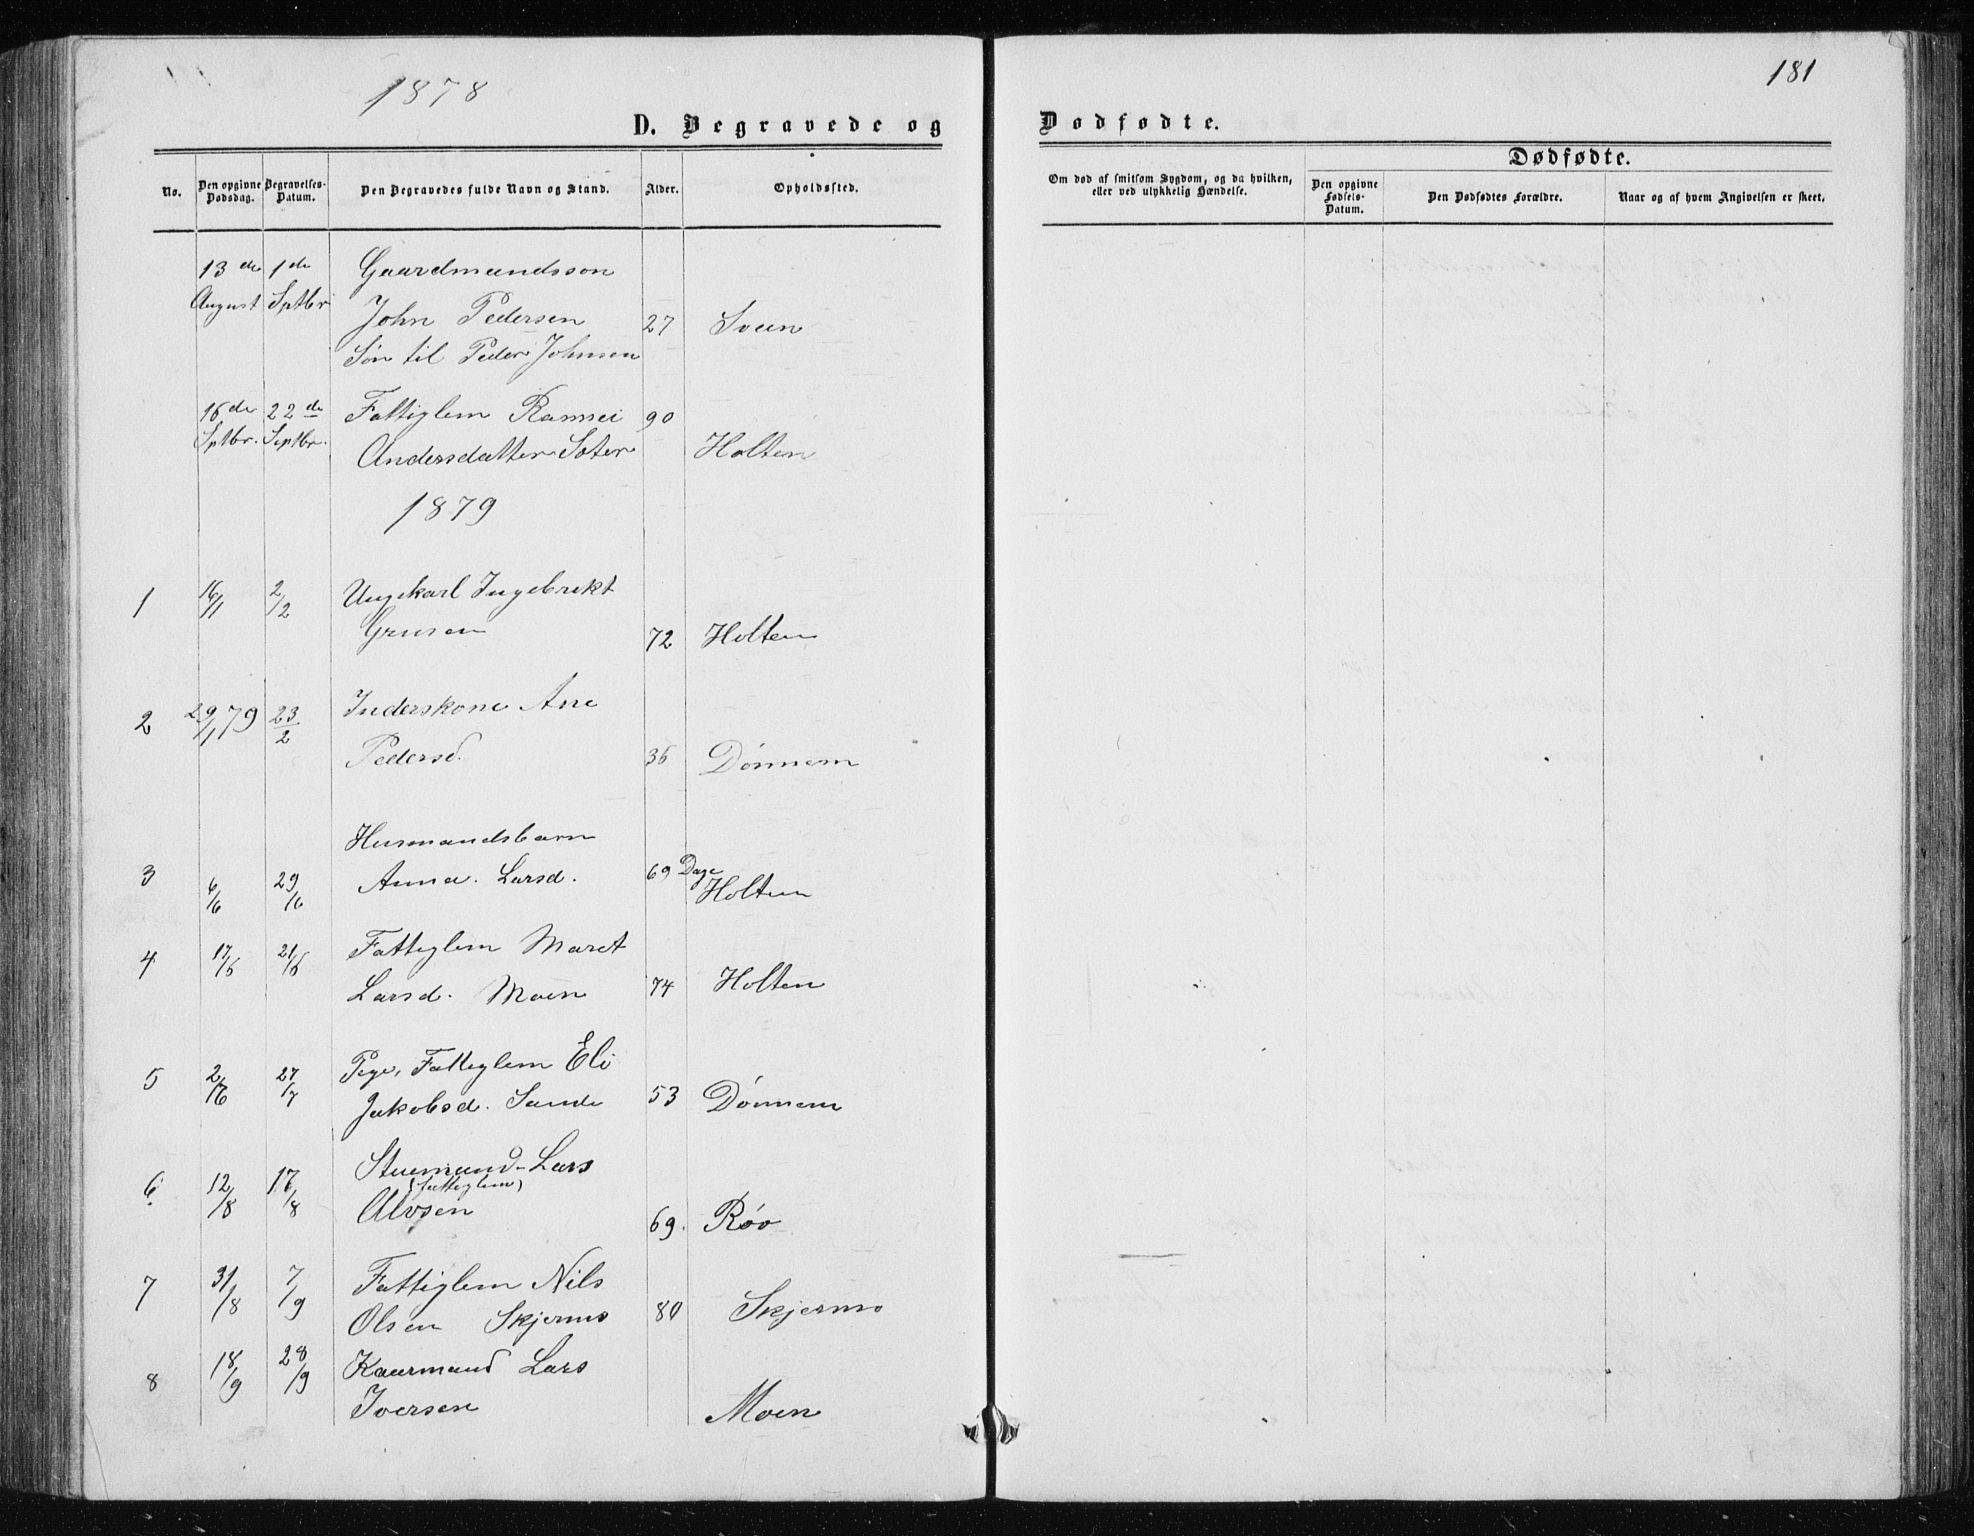 1878
181
D. Begravede og
Dødfødte.
No.
Den opgivne Dødsdag.
Begravelses-Datum.
Den Begravedes fulde Navn og Stand.
Alder.
Opholdssted.
Om død af smitsom Sygdom, og da hvilken, eller ved ulykkelig Hændelse.
Dødfødte.
Den opgivne Fødsels-Datum.
Den Dødfødtes Forældre.
Naar og af hvem Angivelsen er skeet.
13de 1de Gaardmandssøn
August Sptbr John Pedersen 27 Sveen
Søn til Peder Johnsen
16de 22de Fattiglem Rannei 90
Sptbr. Septbr. Andersdatter Holten
1879
1 16/1 2/2 Ungekarl Ingebrikt
72 Holten
2 29/1 79 23/2 Inderskone Ane
Pedersd. 36 Dønnem
Husmandsbarn
3 6/6 29/6 Anna Larsd. 69 Dage Holten
4 17/6 21/6 Fattiglem Maret
Larsd. Moen 74 Holten
5 27/7 Pige, Fattiglem Eli
Jakobsd. Sande 53 Dønnem
6 12/8 17/8 Stuemand Lars
(fattiglem)
Alvsen 69. Røv
7 31/8 7/9 Fattiglem Nils
Olsen Skjermo 80 Skjermo
8 18/9 28/9 Kaarmand Lars
Iversen Moen